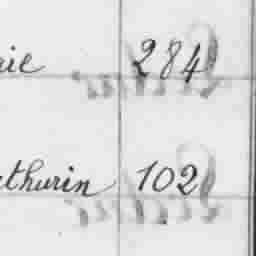 rie 284
athurin 102